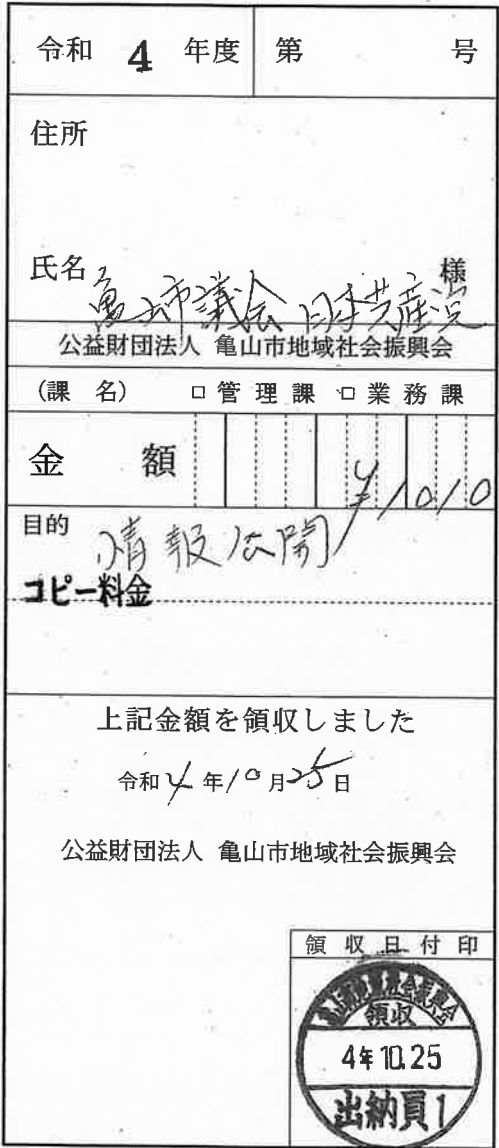 令和 4 年度 第 号
住所
氏名 亀山市議会 日本共産党 様
公益財団法人 亀山市地域社会振興会
(課 名) □管理課 □業務課
金 額 ¥1010
目的 情報公開
コピー料金
上記金額を領収しました
令和4年10月25日
公益財団法人 亀山市地域社会振興会
領収日付印
亀山市地域社会振興会
領収
4年10.25
出納員1